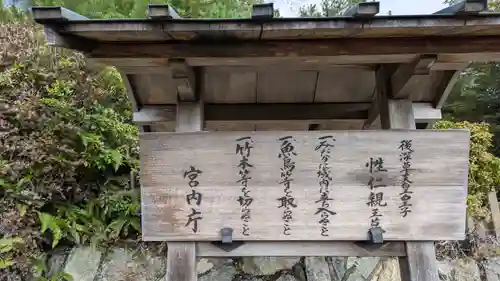 後深草天皇皇子
性仁親王墓
一みだりに域内に立ち入らぬこと
一魚鳥等を取らぬこと
一竹木等を切らぬこと
宮内庁